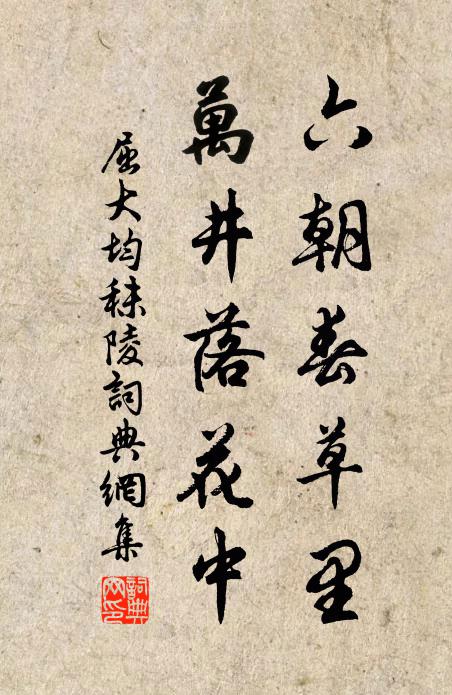 六朝春草里
萬井落花中
屈大均秣陵詞典網集
詞典網印